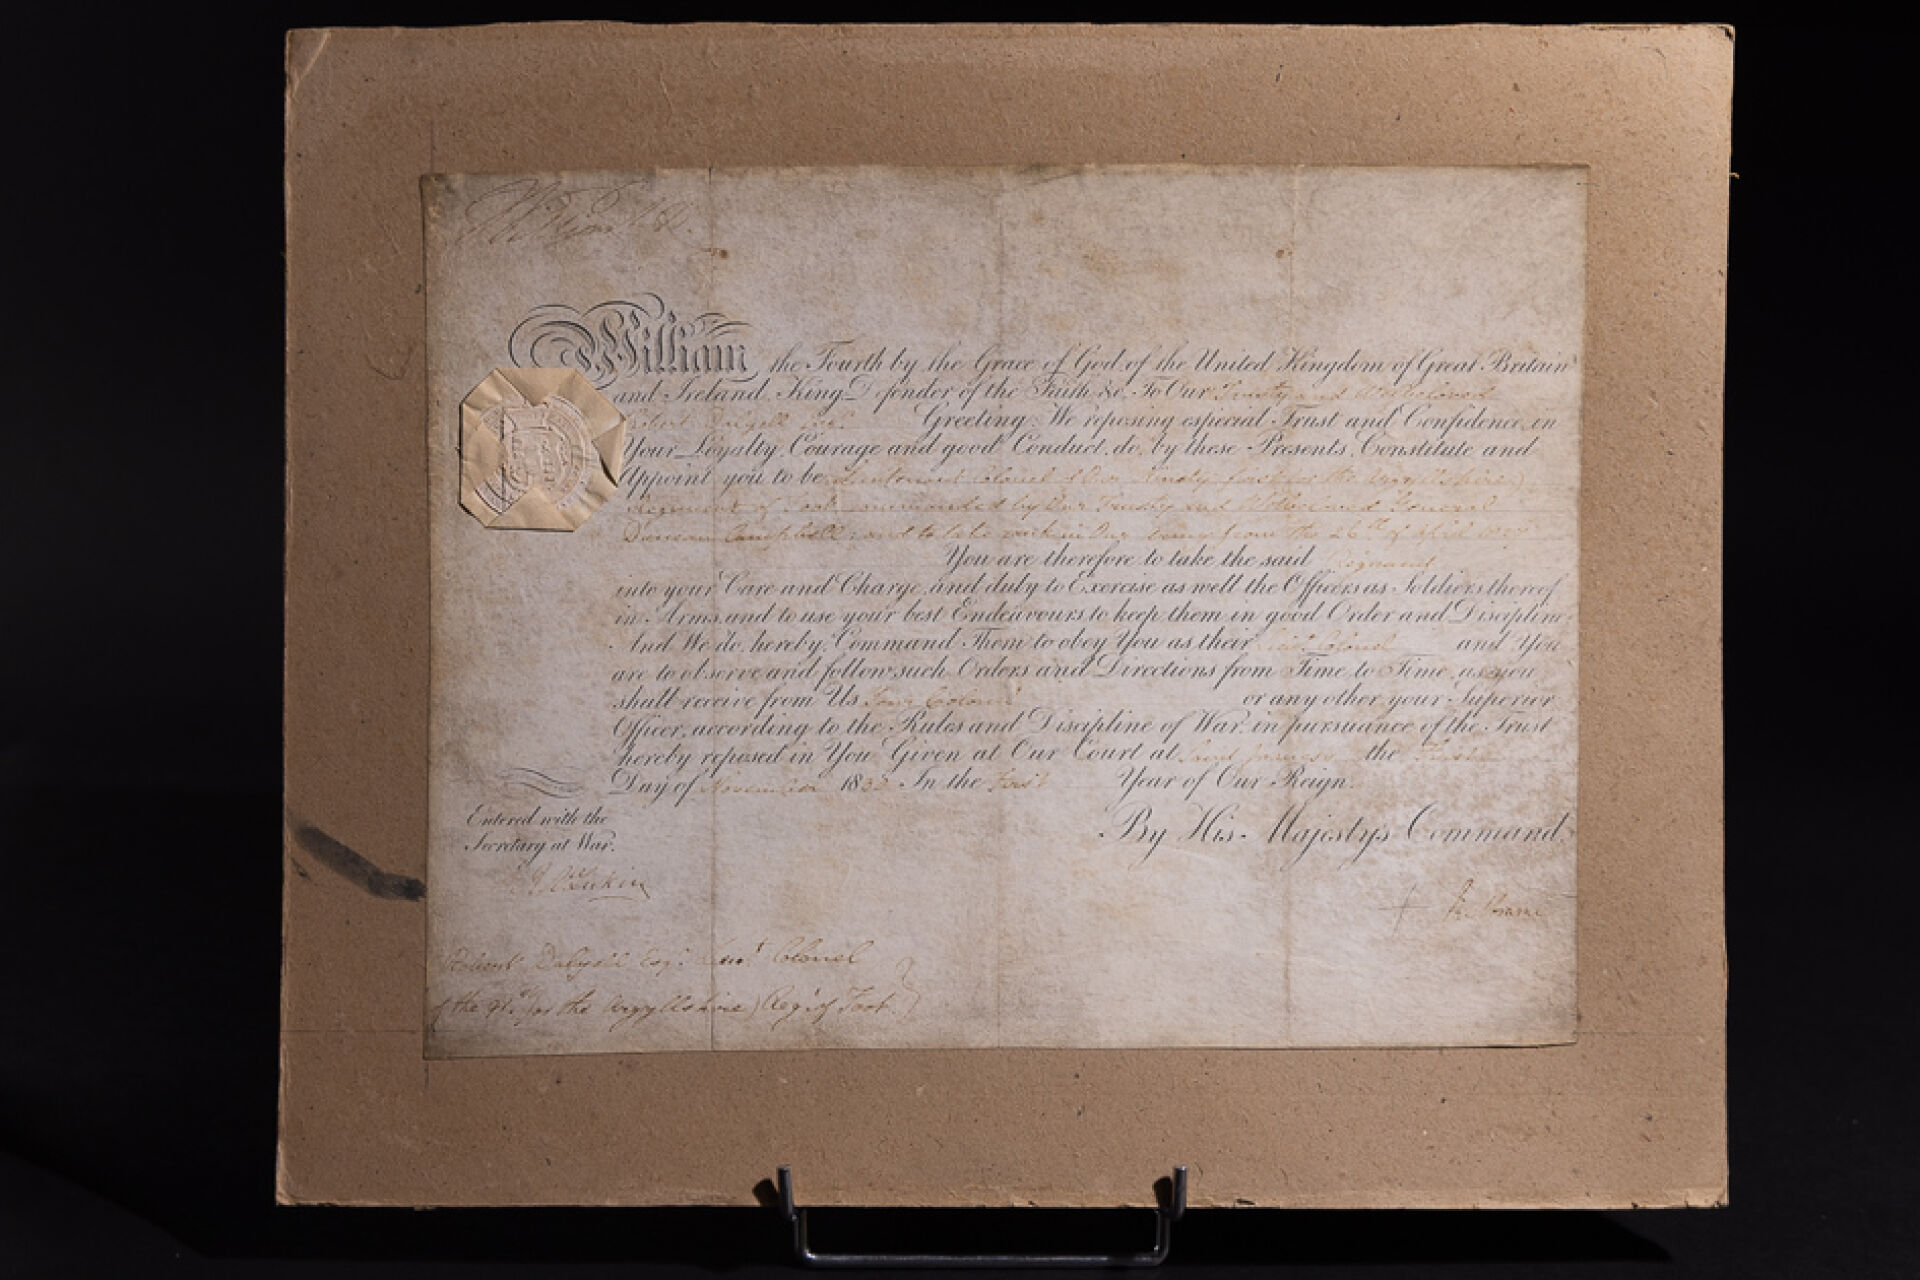 William the Fourth by the Grace of God, of the United Kingdom of Great Britain
and Ireland, King, Defender of the Faith &c. To Our Trusty and Welbeloved
Robert Dalyell Esqr. Greeting: We reposing especial Trust and Confidence in
Your Loyalty, Courage and good Conduct, do, by these Presents, Constitute and
Appoint you to be Lieutenant Colonel of Our Ninety first (or the Argyllshire)
Regiment of Foot commanded by Our Trusty and Welbeloved General
Duncan Campbell: and to take rank in Our Army from the 26th of April
You are therefore to take the said Regiment
into your Care and Charge, and duly to Exercise as well the Officers as Soldiers thereof
in Arms, and to use your best Endeavours to keep them in good Order and Discipline;
And We do, hereby, Command Them to obey You as their Lieut. Colonel and You
are to observe and follow such Orders and Directions from Time to Time, as you
shall receive from Us Your Colonel or any other your Superior
Officer, according to the Rules and Discipline of War, in pursuance of the Trust
hereby reposed in You. Given at Our Court at Saint James's the First
Day of November 1830 In the First Year of Our Reign.
Entered with the
Secretary at War.
By His Majesty's Command.
Robert Dalyell Esqr. Lieut. Colonel
of the 91st (or the Argyllshire) Regt. of Foot.